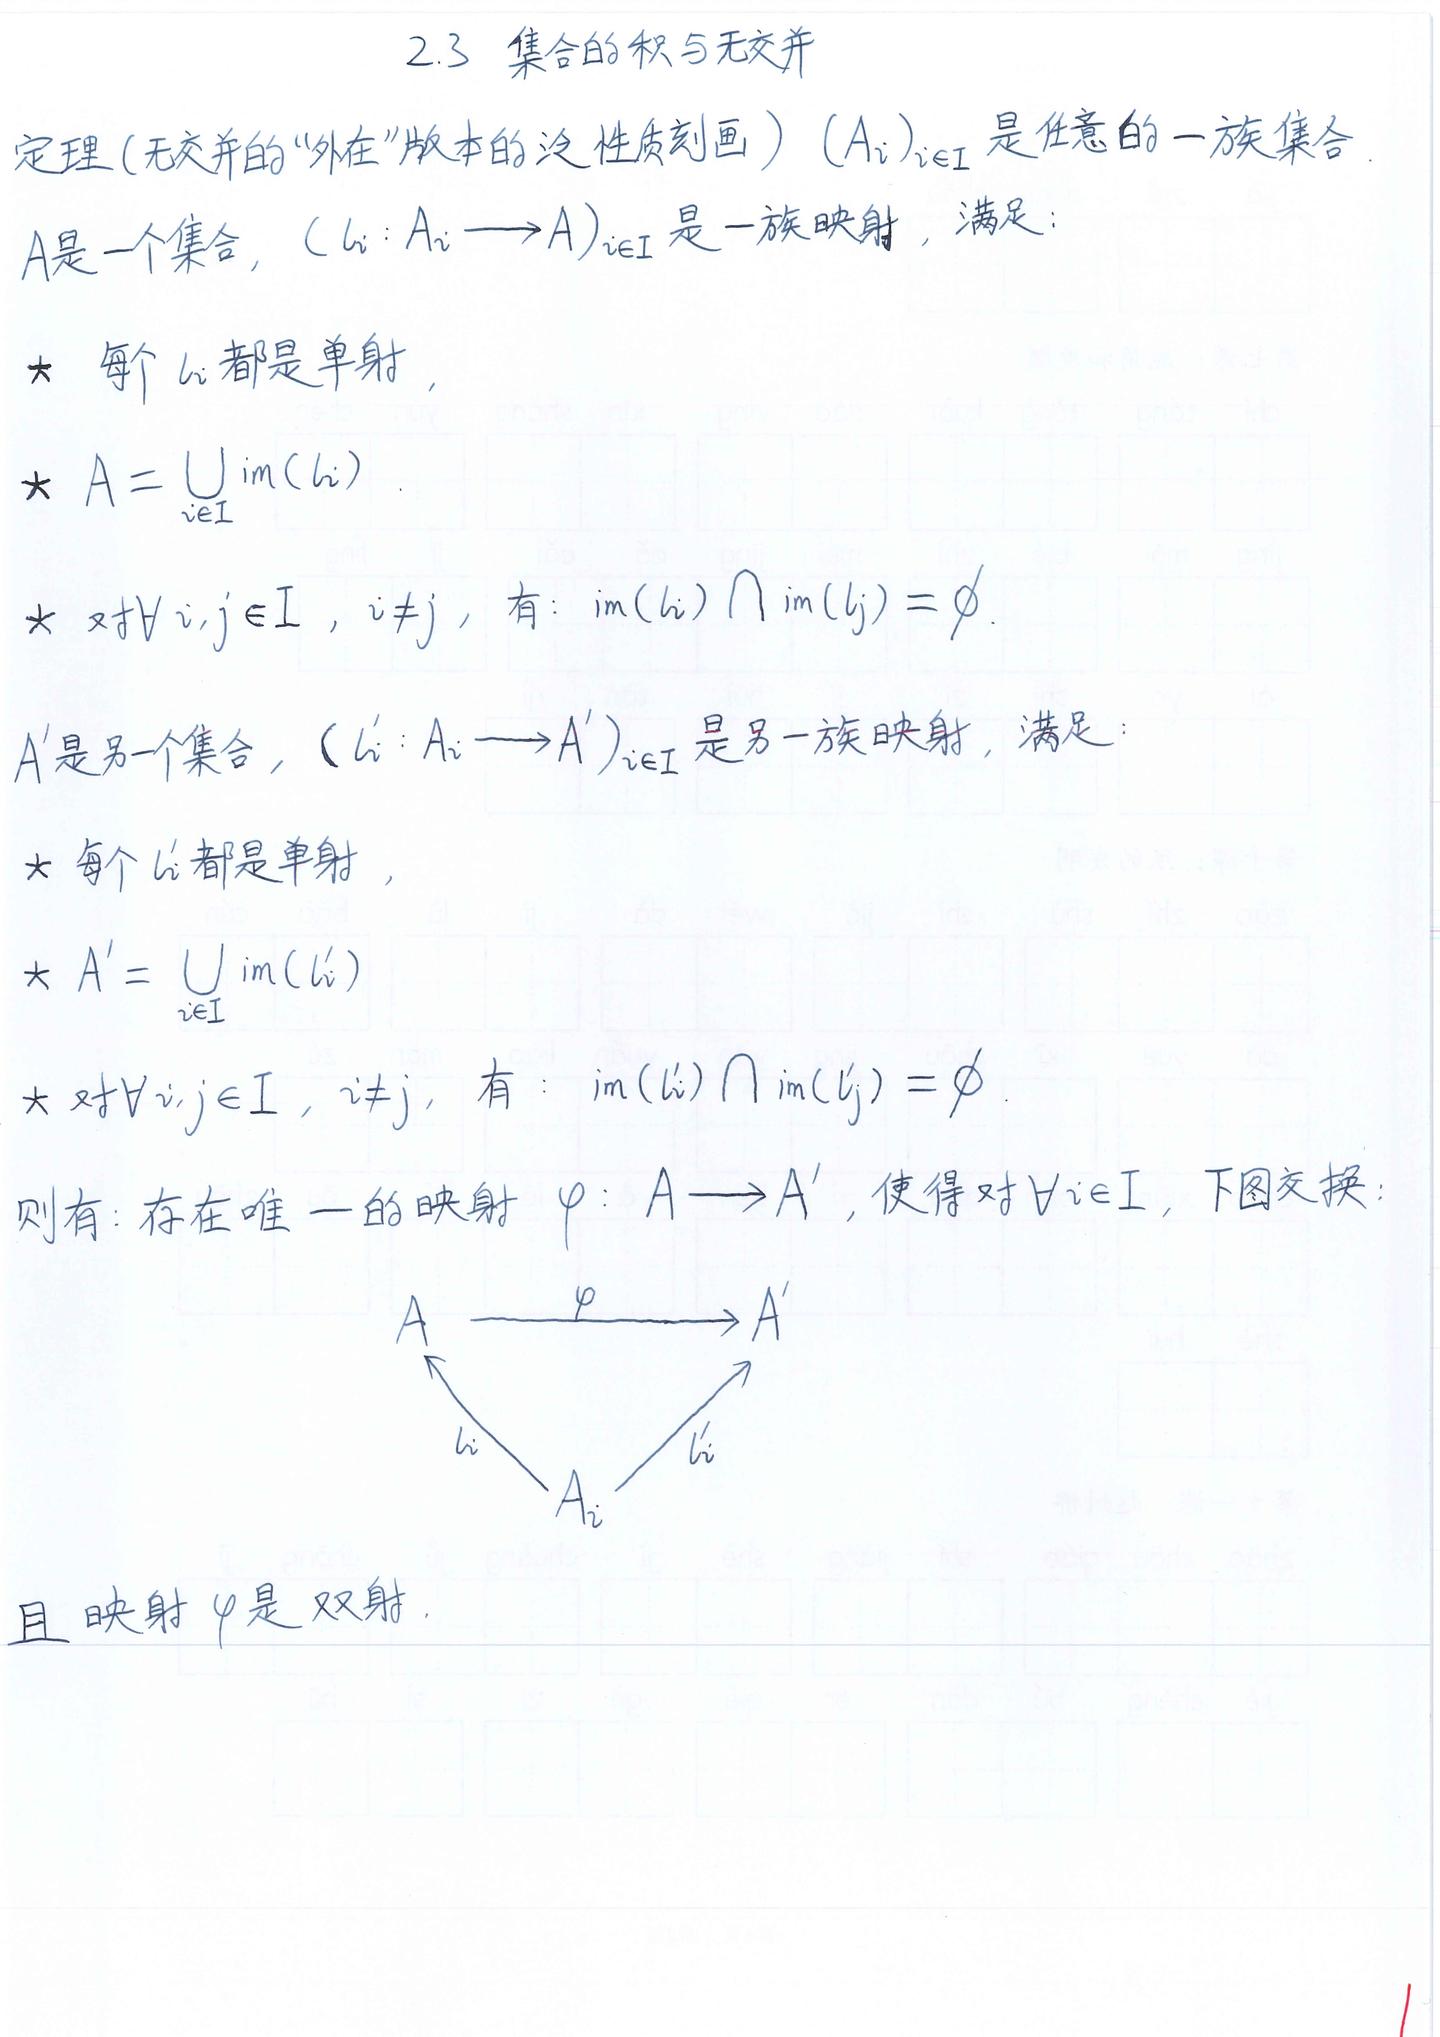 2.3 集合的积与无交并
定理(无交并的“外在”版本的泛性质刻画) (Aᵢ)ᵢ∈I 是任意的一族集合.
A是一个集合, (ιᵢ : Aᵢ ⟶ A)ᵢ∈I 是一族映射, 满足:
★ 每个 ιᵢ 都是单射,
★ A = ⋃ im(ιᵢ) .
i∈I
★ 对∀ i, j ∈ I , i ≠ j , 有: im(ιᵢ) ⋂ im(ιⱼ) = ∅.
A′是另一个集合, (ιᵢ′ : Aᵢ ⟶ A′)ᵢ∈I 是另一族映射, 满足:
★ 每个 ιᵢ′ 都是单射,
★ A′ = ⋃ im(ιᵢ′)
i∈I
★ 对∀ i, j ∈ I , i ≠ j, 有: im(ιᵢ′) ⋂ im(ιⱼ′) = ∅.
则有: 存在唯一的映射 φ : A ⟶ A′, 使得对 ∀ i ∈ I, 下图交换:
φ
A ⟶ A′
ιᵢ ιᵢ′
Aᵢ
且映射 φ 是双射.
1